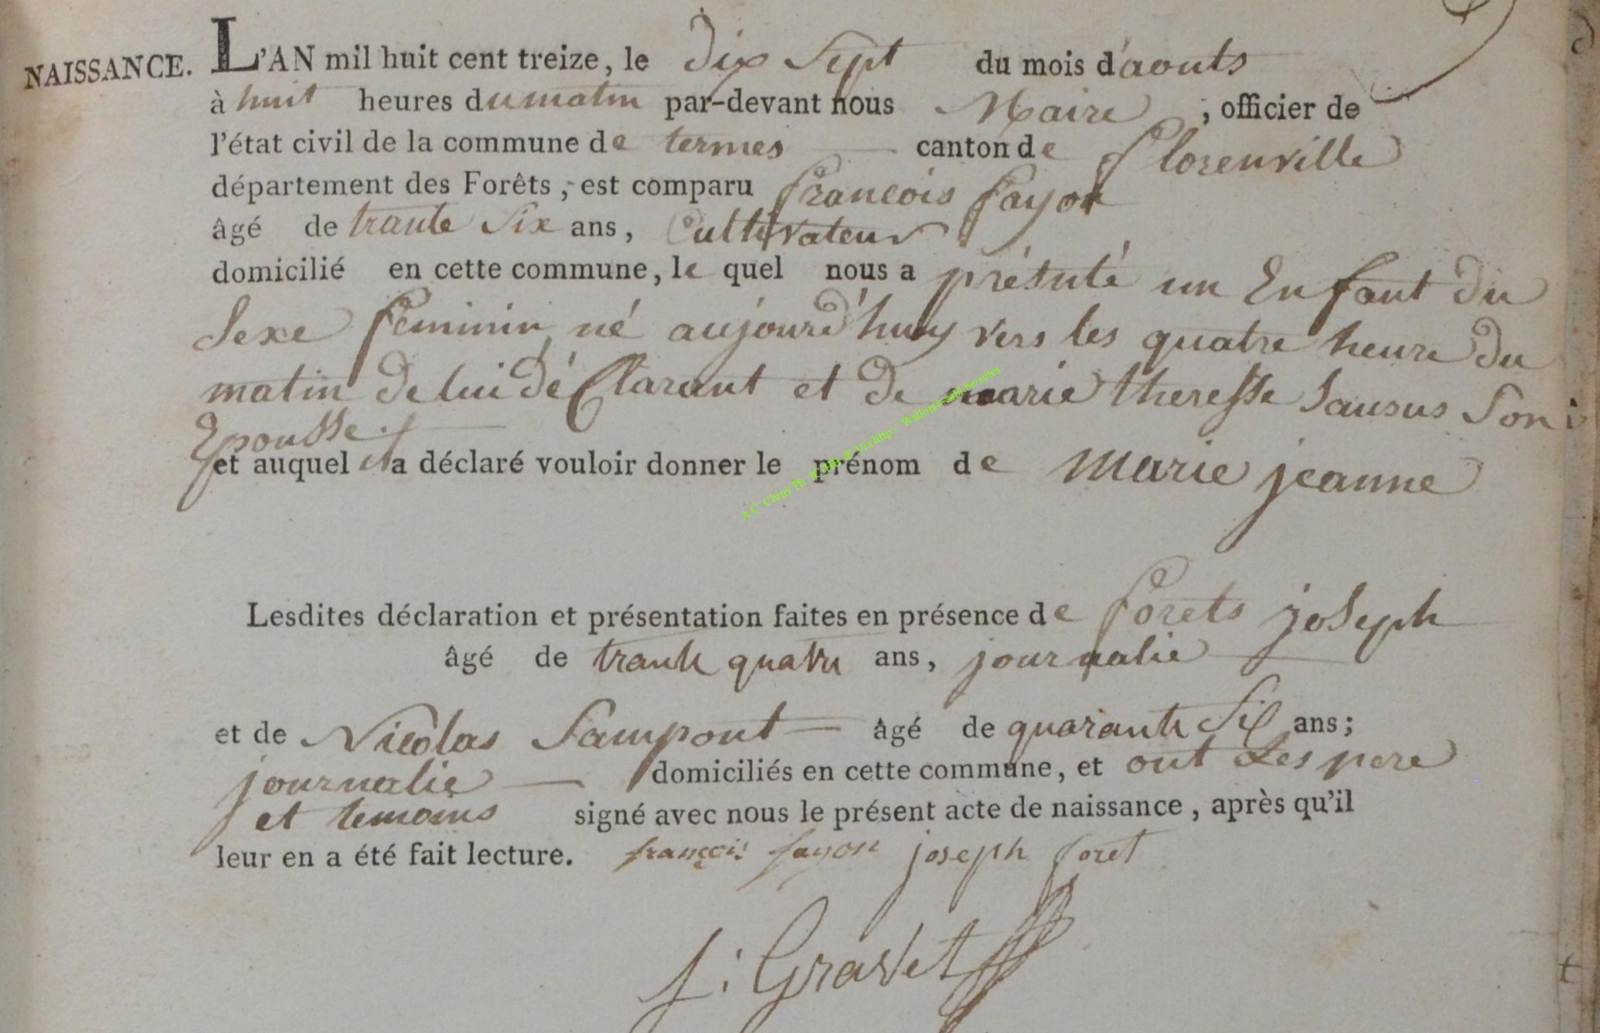 NAISSANCE. L'AN mil huit cent treize, le dix sept du mois d'aouts
à huit heures du matin par-devant nous Maire, officier de
l'état civil de la commune de termes canton de florenville
département des Forêts, est comparu françois fayon
âgé de trante six ans, Cultivateur
domicilié en cette commune, le quel nous a présuté un Enfant du
Sexe feminin né aujourd'huy vers les quatre heure du
matin de lui déClarant et de marie theresse Sausus Son
Epousse
et auquel il a déclaré vouloir donner le prénom de marie jeanne
Lesdites déclaration et présentation faites en présence de forets joseph
âgé de trante quatre ans, journalie
et de Nicolas Sampont âgé de quarante Six ans;
journalie domiciliés en cette commune, et ont Les pere
et temoins signé avec nous le présent acte de naissance, après qu'il
leur en a été fait lecture. françois fayon joseph foret
Gravet